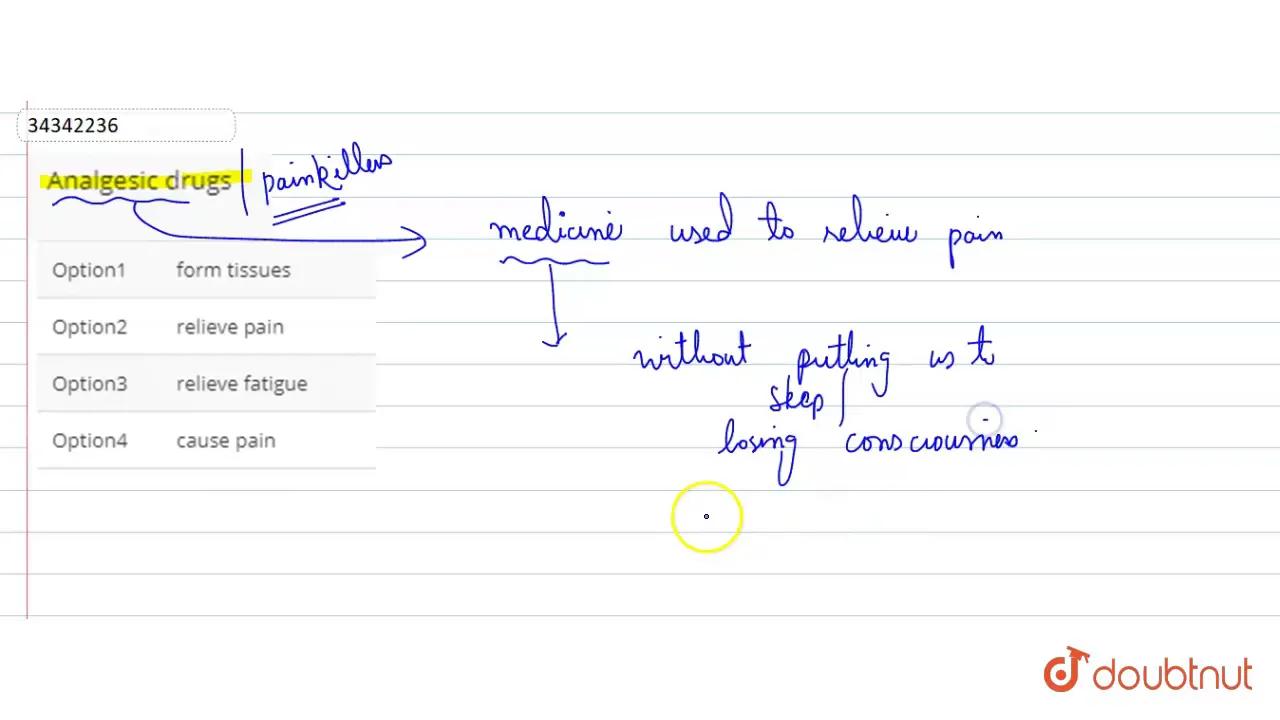 34342236
Analgesic drugs | painkillers
medicine used to relieve pain
Option1 form tissues
Option2 relieve pain
without putting us to
Option3 relieve fatigue
sleep /
Option4 cause pain
losing consciousness
doubtnut